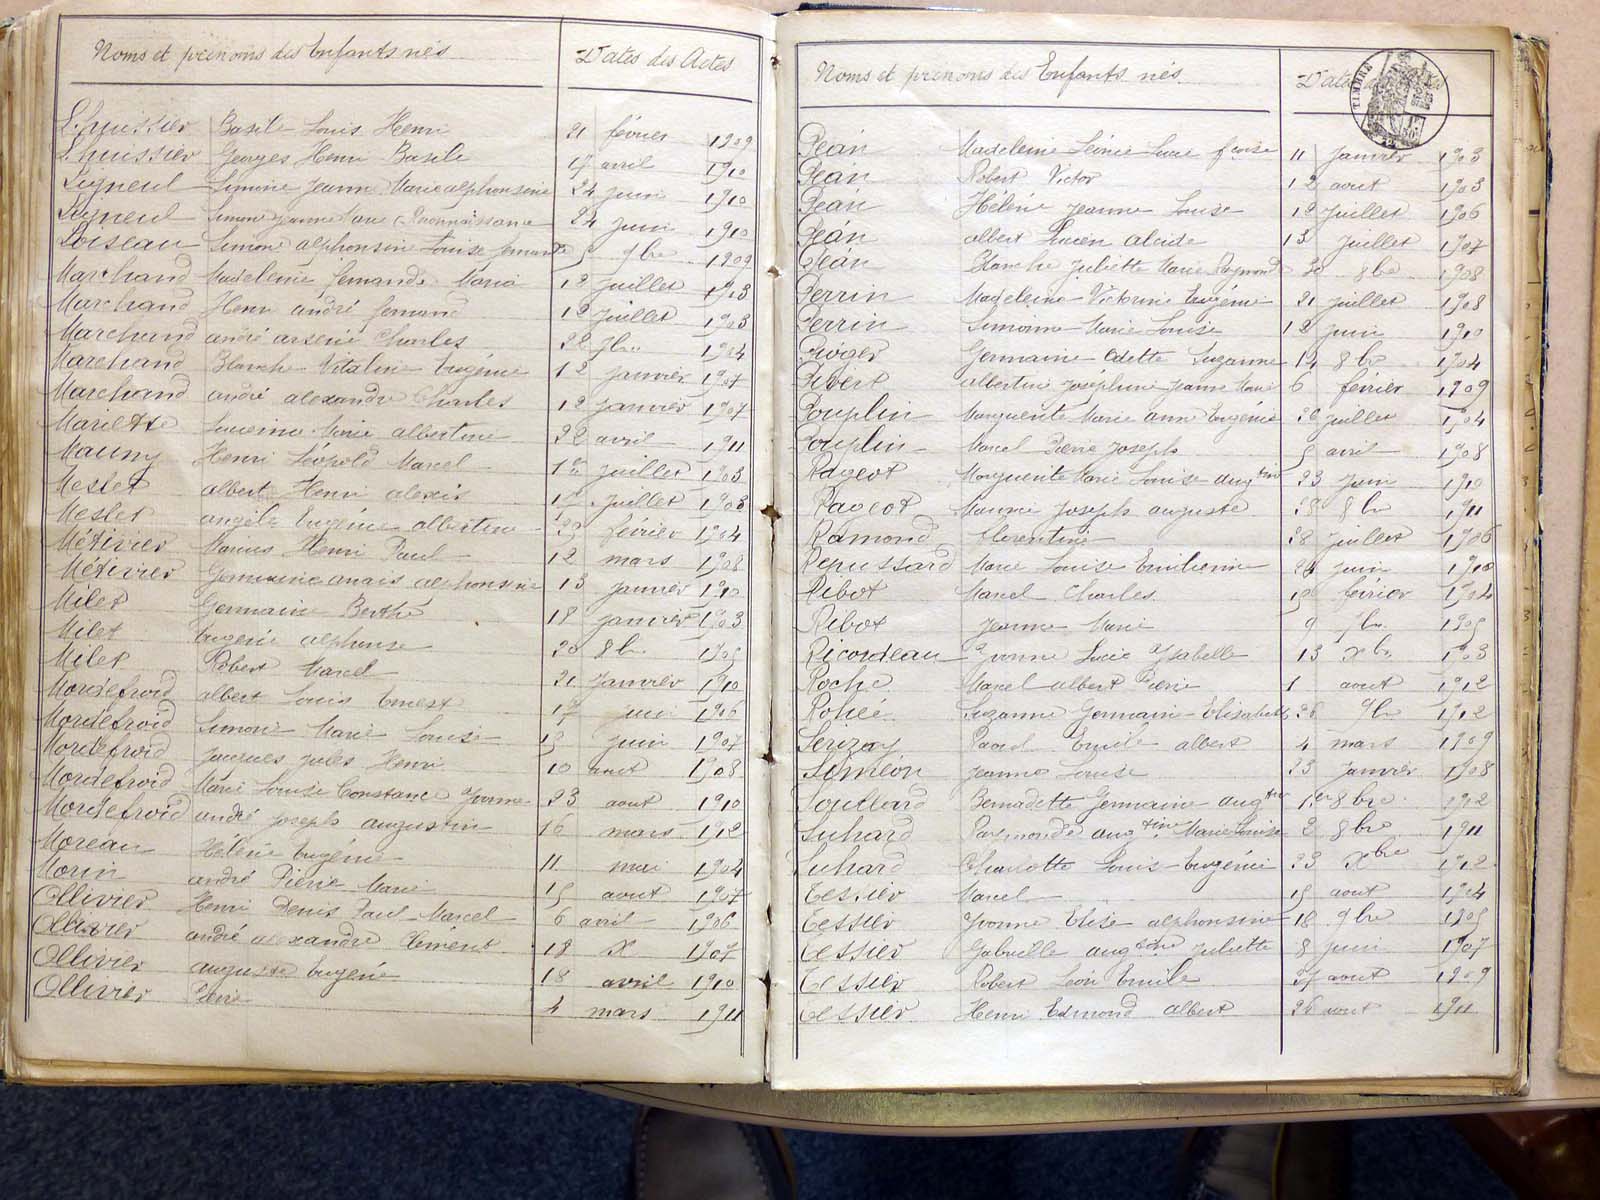 Noms et prénoms des Enfants nés Dates des Actes
Lhuissier Basile Louis Henri 21 février 1909
Lhuissier Georges Henri Basile 17 avril 1910
Ligneul Simone Jeanne Marie alphonsine 24 juin 1910
Ligneul Simone Jeanne Marie (Reconnaissance 24 juin 1910
Loiseau Simone alphonsine Louise fernande 5 9bre 1909
Marchand Madeleine fernande Maria 12 juillet 1903
Marchand Henri andré fernand 12 juillet 1903
Marchand andré arsène Charles 22 7bre 1904
Marchand Blanche Vitaline Eugénie 12 janvier 1907
Marchand andré alexandre Charles 12 janvier 1907
Mariette Lucienne Marie albertine 22 avril 1911
Mauny Henri Léopold Marcel 1er juillet 1903
Meslet albert Henri alexis 17 juillet 1903
Meslet angèle Eugénie albertine 29 février 1904
Métivier Marius Henri Paul 12 mars 1908
Métivier Germaine anaïs alphonsine 13 janvier 1910
Milet Germaine Berthe 18 janvier 1903
Milet Eugénie alphonse 20 8bre 1905
Milet Robert Marcel 21 janvier 1910
Mordefroid albert Louis Ernest 17 juin 1906
Mordefroid Simone Marie Louise 15 juin 1907
Mordefroid Jacques Jules Henri 10 aout 1908
Mordefroid Marie Louise Constance Yvonne 23 aout 1910
Mordefroid andré Joseph augustin 16 mars 1912
Moreau Hélène Eugénie 11 mai 1904
Morin andré Pierre Marie 15 aout 1907
Ollivier Henri Denis Paul Marcel 6 avril 1906
Ollivier andré alexandre Clément 18 X 1907
Ollivier auguste Eugène 18 avril 1910
Ollivier Pierre 4 mars 1911
Noms et prénoms des Enfants nés Dates
TIMBRE
Péan Madeleine Léonie Lucie fçoise 11 janvier 1903
Péan Robert Victor 12 aout 1903
Péan Hélène Jeanne Louise 12 juillet 1906
Péan albert Lucien alcide 13 juillet 1907
Péan Blanche Juliette Marie Raymonde 30 8bre 1908
Perrin Madeleine Victorine Eugénie 21 juillet 1908
Perrin Simonne Marie Louise 12 juin 1910
Germaine Odette Suzanne 14 8bre 1904
Pivert albertine Joséphine Jeanne Marie 6 février 1909
Pouplin Marguerite Marie anne Eugénie 20 juillet 1904
Pouplin Marcel Pierre Joseph 5 avril 1908
Rageot Marguerite Marie Louise augtine 23 juin 1910
Rageot Maurice Joseph auguste 28 8bre 1911
Ramond florentine 28 juillet 1906
Repussard Marie Louise Emilienne 24 juin 1910
Ribot Marcel Charles 15 février 1904
Ribot Jeanne Marie 9 7bre 1905
Ricordeau Yvonne Lucie Ysabelle 13 Xbre 1903
Roche Marcel albert Pierre 1 aout 1912
Rohée Suzanne Germaine Elisabeth 26 9bre 1912
Seruzay Raoul Emile albert 4 mars 1909
Siméon Jeanne Louise 23 janvier 1908
Soullard Bernadette Germaine augtine 1er 8bre 1912
Suhard Raymonde augtine Marie Louise 2 8bre 1911
Suhard Charlotte Louis Eugénie 23 Xbre 1912
Tessier Marcel 15 aout 1904
Tessier Yvonne Elise alphonsine 18 9bre 1905
Tessier Gabrielle augtine Juliette 8 juin 1907
Tessier Robert Léon Emile 27 aout 1909
Tessier Henri Edmond albert 26 aout 1911